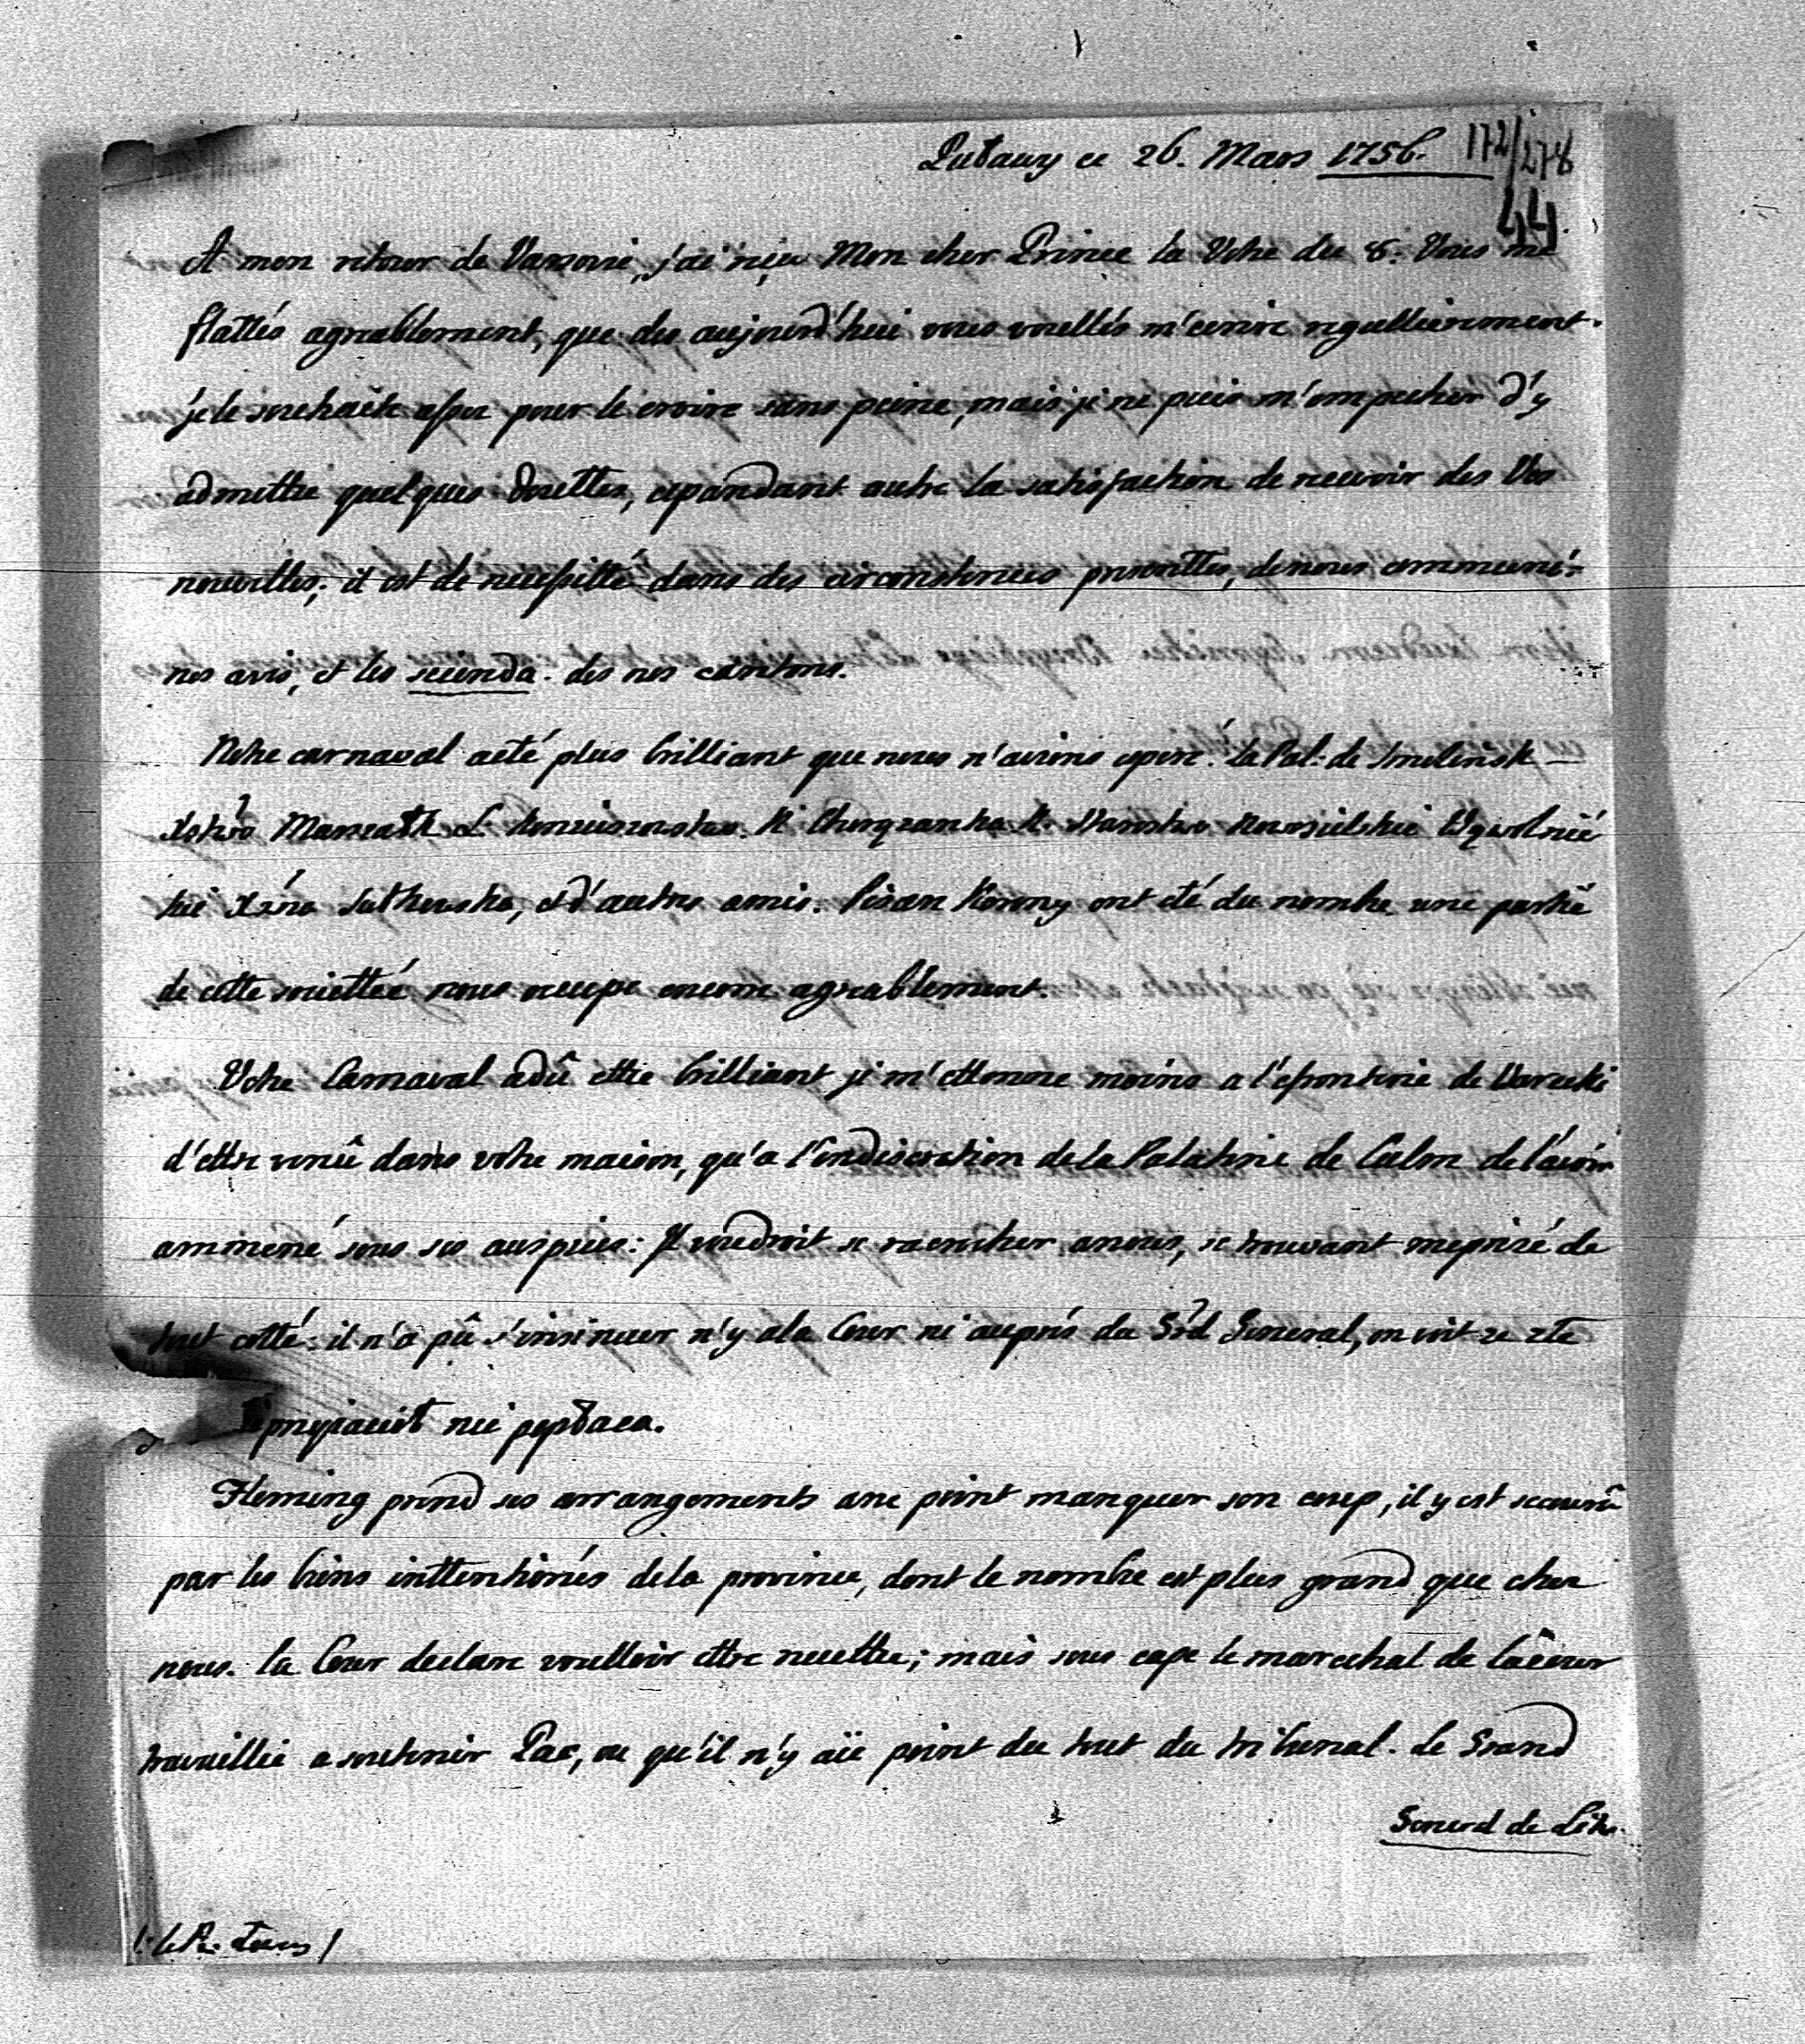 Putawy ce 26. Mars 1756. 172/278
44
A mon retour de Varsovie, j'ai reçu Mon cher Prince la Votre du 8. Vous me
flattés agreablement, que des aujourd'hui vous voullés m'ecrire regullierement.
je le souhaite assez pour le croire sans peine, mais je ne puis m'empecher d'y
admettre quelques douttes, cependant outre la satisfaction de recevoir des Vos
nouvelles; il est de necessitté dans des circonstences presenttes, de nous communi-
nos avis, et les secunda. des nos cantons.
Notre carnaval a été plus brilliant que nous n'avions esperé. Le Pal: de Smolensk
et d'autres amis. ont eté du nombre une partie
de cette societtée nous occupe encorre agreablement.
Votre Carnaval a dû ettre brilliant je m'ettonne moins a l'efronterie de
d'ettre venû dans votre maison, qu'a l'indiscretion de la Palatine de Culm de l'avoir
ammené sous ses auspices: Il voudroit se racrocher a nous, se trouvant meprisé de
tout cotté: il n'a pû s'insinuer n'y a la Cour ni auprés du Grd General, on voit ze zte
przyiaciół nie popłaca.
Fleming prend ses arrangements a ne point manquer son coup, il y est secourû
par les biens inttentionés de la province, dont le nombre est plus grand que chez
nous. la Cour declare voulloir ettre neuttre; mais sous cape le marechal de la cour
travaillie a soutenir Pac, ou qu'il n'y aïe point du tout du tribunal. le Grand
General de Lith.